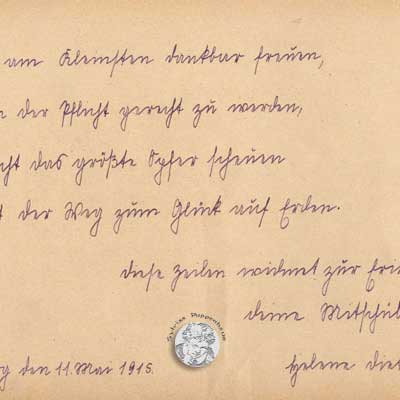 am Kleinsten dankbar freuen,
der Pflicht gerecht zu werden,
cht das größte Opfer scheuen
t der Weg zum Glück auf Erden.
diese Zeilen widmet zur Erin
deine Mitschül
g den 11. Mai 1915.
Helene Diet
Sabrias Puppenheim